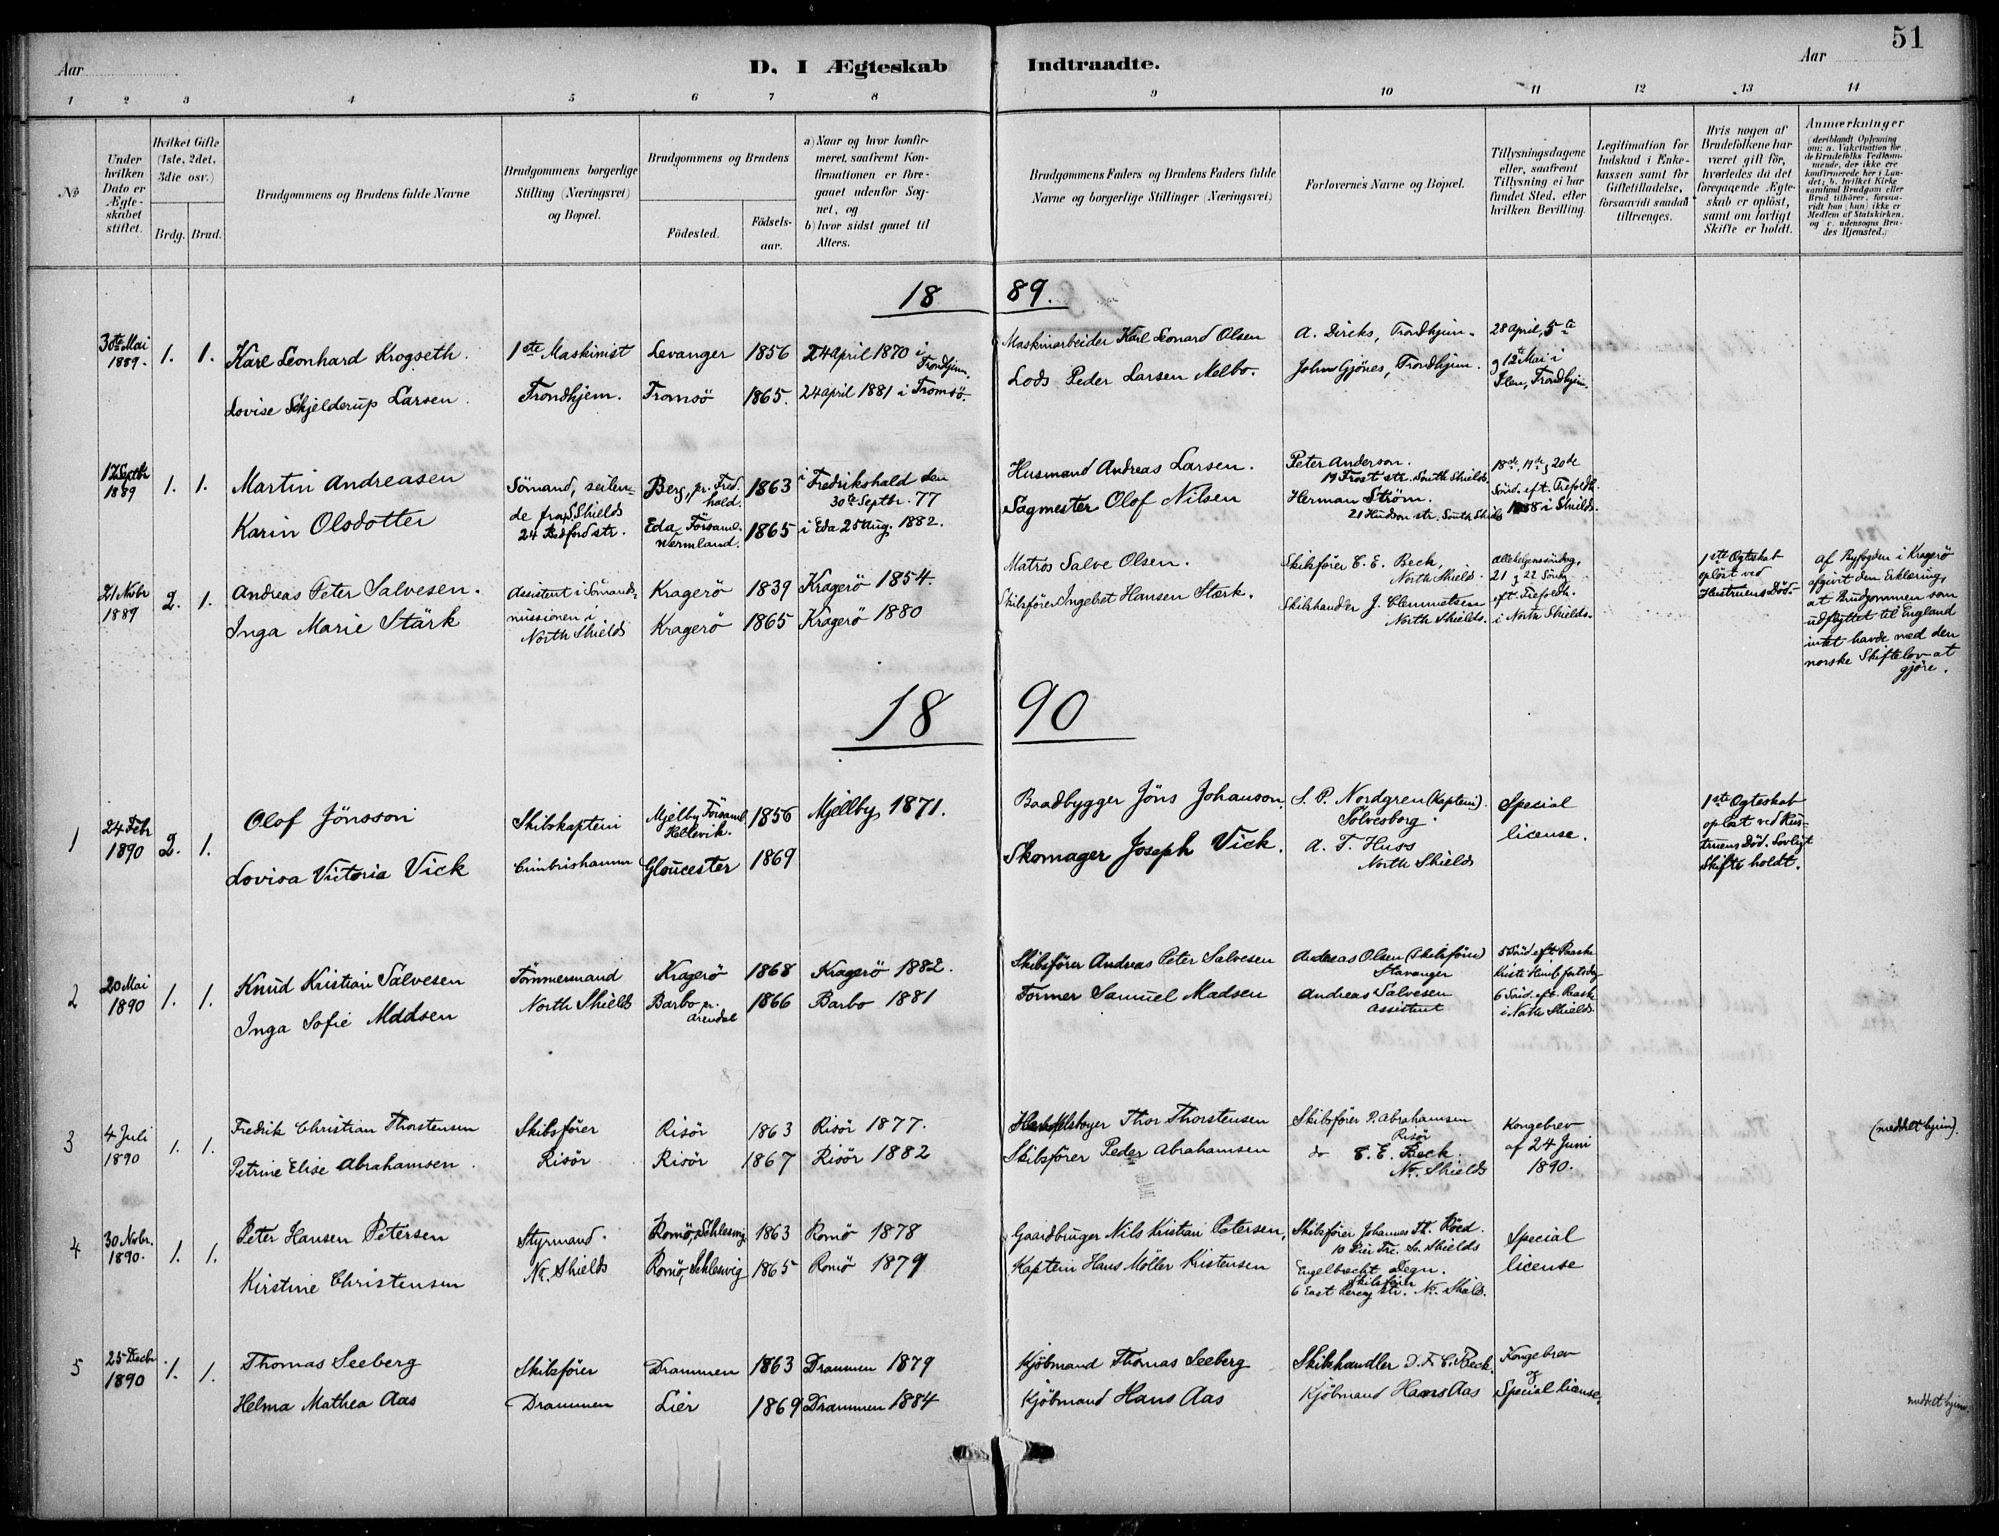 51
Aar
D. I Ægteskab Indtraadte.
Aar
1 2 3 4 5 6 7 8 9 10 11 12 13 14
No
Under hvilken Dato er Ægteskabet stiftet.
Hvilket Gifte (1ste, 2det, 3die osv.)
Brdg. Brud.
Brudgommens og Brudens fulde Navne
Brudgommens borgerlige Stilling (Næringsvei) og Bopæl.
Brudgommens og Brudens
Födested.
Födselsaar.
a) Naar og hvor konfirmeret, saafremt Konfirmationen er foregaaet udenfor Sognet, og
b) hvor sidst gaaet til Alters.
Brudgommens Faders og Brudens Faders fulde Navne og borgerlige Stillinger (Næringsvei)
Forlovernes Navne og Bopæl.
Tillysningsdagene eller, saafremt Tillysning ei har fundet Sted, efter hvilken Bevilling.
Legitimation for Indskud i Enkekassen samt for Giftetilladelse, forsaavidt saadan tiltrænges.
Hvis nogen af Brudefolkene har været gift før, hvorledes da det foregaaende Ægteskab er oplöst, samt om lovligt Skifte er holdt.
Anmærkninger (deriblandt Oplysning om: a. Vakcination for de Brudefolks Vedkommende, der ikke ere konfirmerede her i Landet; b. hvilket Kirkesamfund Brudgom eller Brud tilhörer, forsaavidt han (hun) ikke er Medlem af Statskirken, og c. udensogns Brudes Hjemsted.)
18 89.
30te Mai 1889. 1. 1.
Karl Leonhard Krogseth.
Lovise Schjelderup Larsen.
1ste Maskinist
Trondhjem.
Levanger 1856 24 April 1870 i Trondhjem.
Tromsö 1865. 24 April 1881 i Tromsö.
Maskinarbeider Karl Leonard Olsen
Lods Peder Larsen Melbo.
A. Dircks, Trondhjem.
John Gjönes, Trondhjem.
28 April, 5te
og 12te Mai i
Ilen, Trondhjem.
17 Septbr 1889 1. 1.
Martin Andreasen
Karin Olsdotter
Sömand, seilen-
de fra S. Shields
24 Bedford str.
Berg, pr. Fred.
hald. 1863
i Fredrikshald den
30te Septbr. 77
Eda Församl.
Wermland. 1865 i Eda 25 Aug. 1882.
Husmand Andreas Larsen.
Sagmester Olof Nilsen
Peter Anderson.
19 Frost str. South Shields
Herman Ström.
21 Hudson str. South Shields
18de, 19de, 20de
Sönd. eft. Trefoldh.
i Shields.
21 Novbr 1889 2. 1.
Andreas Peter Salvesen.
Inga Marie Stärk
Assistent i Sömands-
missionen i
North Shields
Kragerö 1839 Kragerö 1854.
Kragerö 1865 Kragerö 1880
Matros Salve Olsen.
Skibsförer Ingebret Hansen Stærk.
Skibsförer C. E. Beck,
North Shields.
Skibshandler J. Clemmetsen
North Shields.
Allehelgenssöndag,
21 og 22 Söndag
eft. Trefoldh.
i North Shields.
1ste Egteskab
oplöst ved
Hustruens Död.
af Byfogden i Kragerö
afgivt den Erklæring,
at Brudgommen som
udflyttet til England
intet havde med den
norske Skiftelov at
gjöre.
18 90
1 24 Febr 1890 2. 1.
Olof Jönsson
Lovisa Victoria Vick
Skibskaptein
Cimbrishamn
Mjelby Församl.
Hellevik. 1856 Mjellby 1871.
Gloucester 1869
Baadbygger Jöns Johanson.
Skomager Joseph Vick.
S. P. Nordgren (Kaptein).
Sölvesborg.
A. F. Huss
North Shields
Special
license.
1ste Egteskab
oplöst ved Hus-
truens Död. Lovligt
Skifte holdt.
2 20 Mai 1890 1. 1.
Knud Kristian Salvesen
Inga Sofie Madsen
Tömmermand
North Shields
Kragerö 1868 Kragerö 1882.
Barbo pr.
Arendal 1866 Barbo 1881
Skibsförer Andreas Peter Salvesen
Former Samuel Madsen
Andreas Olsen (Skibsförer)
Stavanger
Andreas Salvesen
Assistent
5 Sönd eft. Paaske
Kristi Himlfartsdag
6 Sönd. eft. Paaske
i North Shields.
3 4 Juli 1890 1. 1.
Fredrik Christian Thorstensen
Petrine Elise Abrahamsen.
Skibsförer
Risör
Risör 1863 Risör 1877.
Risör 1867 Risör 1882
Thor Thorstensen
Skibsförer Peder Abrahamsen
Skibsförer P. Abrahamsen
Risör
do C. E. Beck.
No. Shields
Kongebrev
af 24 Juni
1890.
(meddelt hjem).
4 30 Novbr. 1890. 1. 1.
Peter Hansen Petersen
Kirstine Christensen
Styrmand.
No. Shields
Romö, Schlesvig 1863 Romö 1878
Romö, Schlesvig 1865 Romö 1879
Gaardbruger Nils Kristian Petersen,
Kaptein Hans Möller Kristensen
Skibsförer Johannes Th. Röed.
10 Pier Tre. So. Shields
Engelbrecht Degn.
Skibsförer
6 East Percy str. No. Shields.
Special
license
5 25 Decbr 1890 1. 1.
Thomas Seeberg
Helma Mathea Aas
Skibsförer
Drammen
Drammen 1863 Drammen 1879
Lier 1869 Drammen 1884
Kjöbmand Thomas Seeberg
Kjöbmand Hans Aas
Skibshandler J. F. C. Beck.
Kjöbmand Hans Aas
Kongebrev
og
Special license.
meddelt hjem